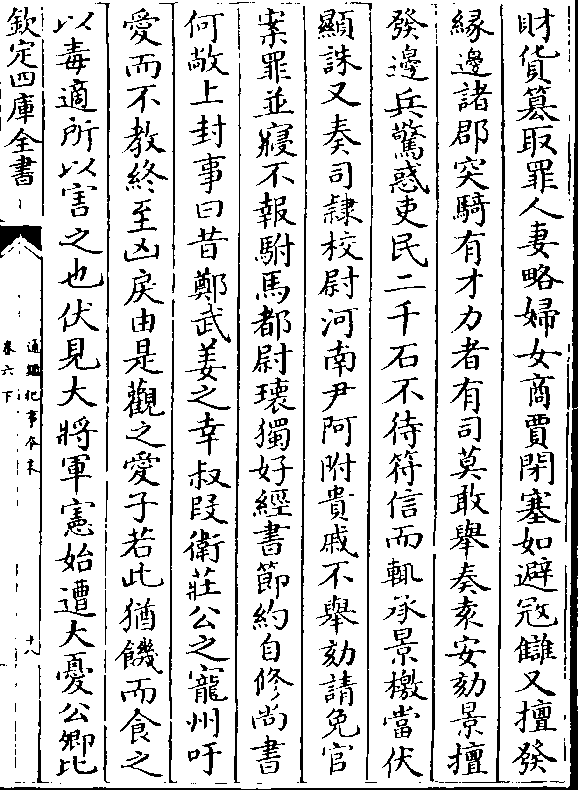 財貨篡取罪人妻略婦女商賈閉塞如避冦讎又擅發
緣邊諸郡突騎有才力者有司莫敢舉奏袁安劾景擅
發邊兵驚惑吏民二千石不待符信而輒承景檄當伏
顯誅又奏司隷校尉河南尹阿附貴戚不舉劾請免官
案罪並寢不報駙馬都尉瓌獨好經書節約自修尚書
何敞上封事曰昔鄭武姜之幸叔段衛莊公之寵州吁
愛而不教終至凶戾由是觀之愛子若此猶饑而食之
以毒適所以害之也伏見大將軍憲始遭大憂公卿比
欽定四庫全書
通鑑紀事本末
卷六下
十八